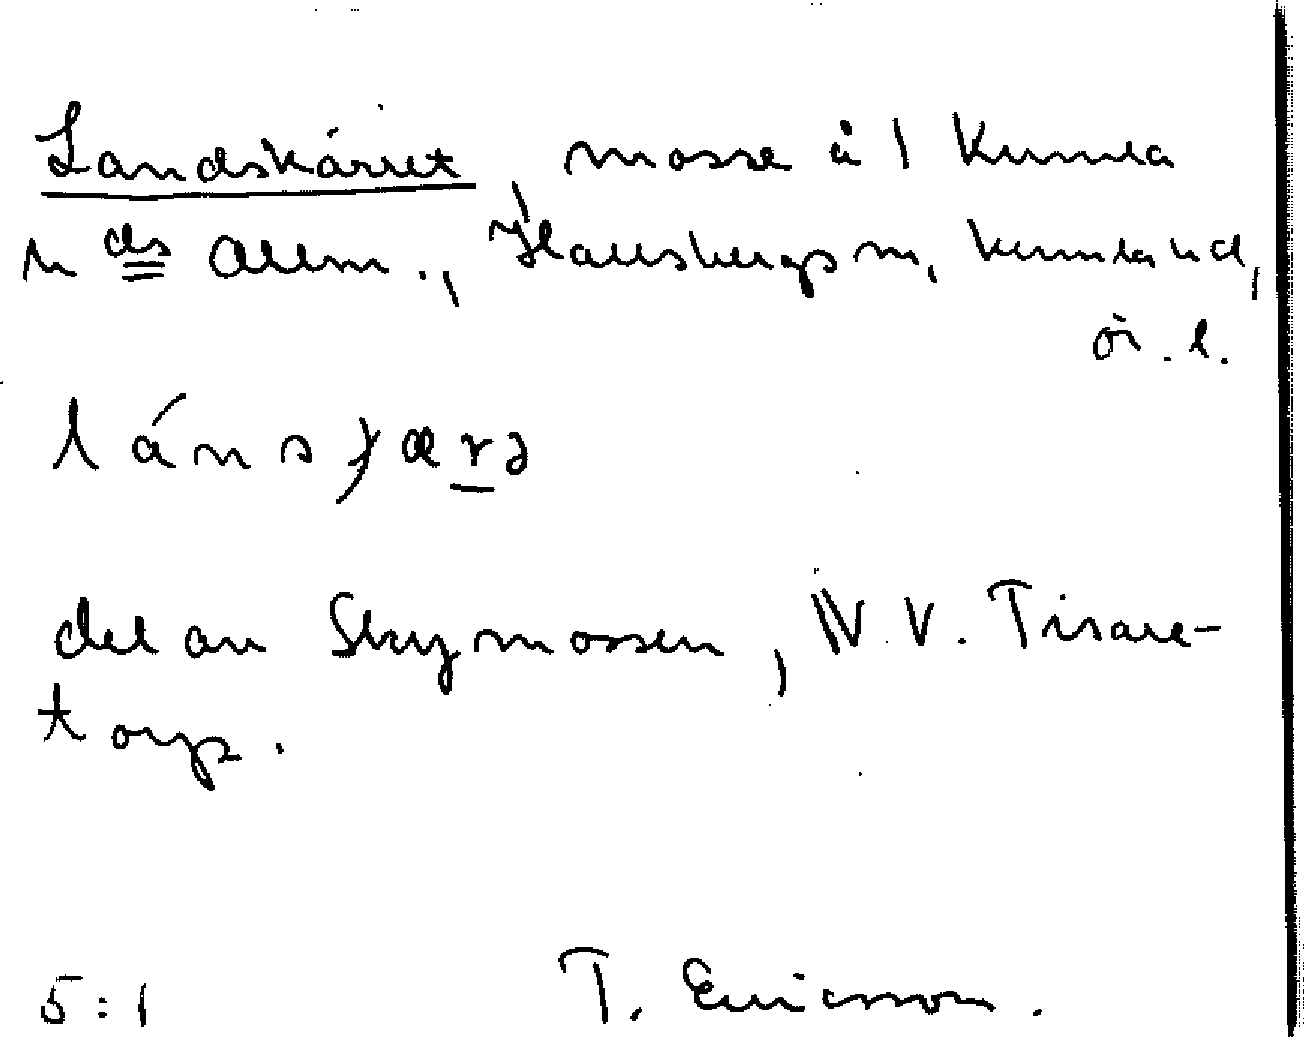 Landskärret, mosse å 1 Kumla
hds Allm., Hallsbergs m, Kumla hd,
ör. l.
lánsҫærə
del av Skymossen, NV. Tisare-
torp.
5:1 T. Ericsson.